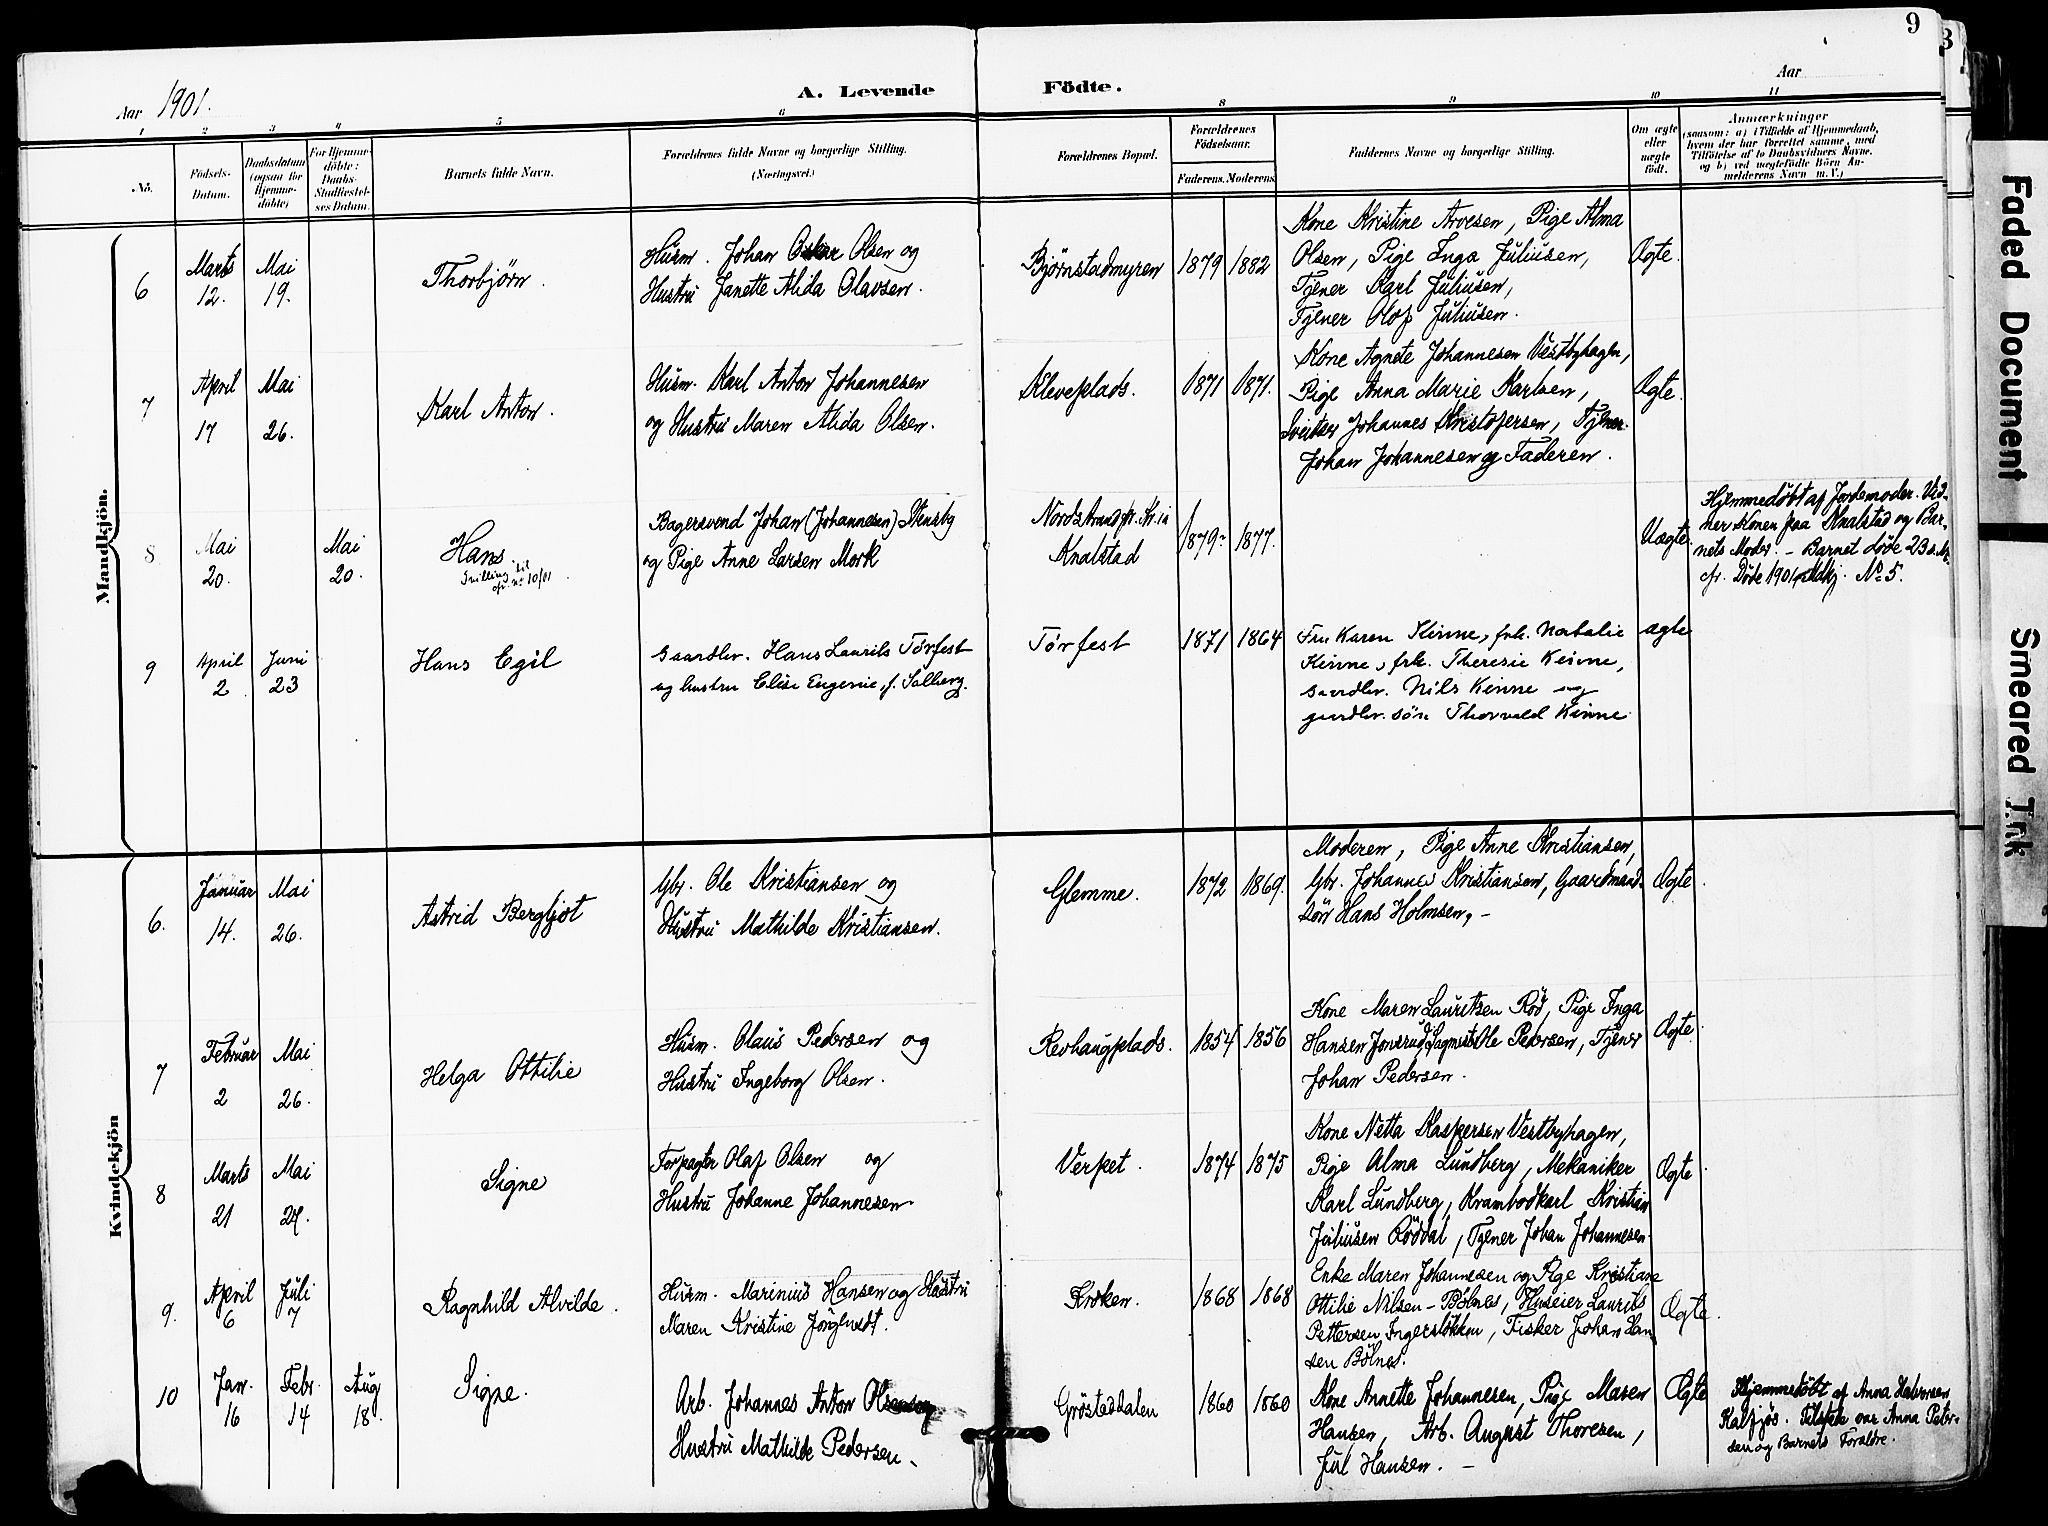 9
3
Aar 1901.
A. Levende Födte.
Aar
1 2 3 4 5 6 8 9 10 11
No.
Födsels-Datum.
Daabsdatum (ogsaa for Hjemme-döbte)
For Hjemme-döbte: Daabs-Stadfæstel-ses Datum.
Barnets fulde Navn.
Forældrenes fulde Navne og borgerlige Stilling. (Næringsvei.)
Forældrenes Bopæl.
Forældrenes Födselsaar.
Faderens. Moderens.
Faddernes Navne og borgerlige Stilling.
Om ægte eller uægte födt.
Anmærkninger
(saasom: a) i Tilfælde af Hjemmedaab,
hvem der har forrettet samme, med
Tilföielse af to Daabsvidners Navne,
og b) ved uægtefödte Börn An-
melderens Navn m. V.)
Mandkjön.
6
Marts 12.
Mai 19.
Thorbjörn.
Husm. Johan Oskar Olsen og
Hustru Janette Alida Olavsen.
Bjørnstadmyren
1879 1882
Kone Kristine Arvesen, Pige Alma
Olsen, Pige Inga Juliusen,
Tjener Karl Juliusen,
Tjener Olof Juliusen.
Ægte.
7
April 17
Mai 26.
Karl Anton.
Husm. Karl Anton Johannesen
og Hustru Maren Alida Olsen.
Kleveplads.
1871 1871.
Kone Agnete Johannesen Vestbyhagen,
Pige Anna Marie Karlsen,
Sveitser Johannes Kristofersen, Tjener
Johan Johannesen og Faderen.
Ægte.
8
Mai 20.
Mai 20.
Hans
Tvilling til
cfr. no 10/01.
Bagersvend Johan (Johannesen) Stensby
og Pige Anne Larsen Mork
Nordstrand pr. Kr.ia
Knalstad
1879? 1877.
Uægte.
Hjemmedøbt af Jordemoder. Vid-
ner Konen paa Knalstad og Bar-
nets Moder. – Barnet døde 23 s. M.
cfr. Døde 1901, Mdkj. No 5.
9
April 2
Juni 23
Hans Egil
Gaardbr. Hans Laurits Törfest
og hustru Elise Eugenie, f. Solberg.
Törfest
1871 1864
Fru Karen Kinne, frk. Natalie
Kinne, frk. Theresie Kinne,
Gaardbr. Nils Kinne og
gaardbr. sön Thorvald Kinne
ægte
Kvindekjön
6.
Januar 14.
Mai 26.
Astrid Bergljot
Gbr. Ole Kristiansen og
Hustru Mathilde Kristiansen.
Glemme.
1872 1869.
Moderen, Pige Anne Kristiansen,
Gbr. Johannes Kristiansen, Gaardmand-
søn Hans Holmsen, –
Ægte.
7
Februar 2
Mai 26.
Helga Ottilie
Husm. Olaus Pedersen og
Hustru Ingeborg Olsen.
Revhaugplads.
1854 1856
Kone Maren Lauritsen Röd, Pige Inga
Hansen Ole Pedersen, Tjener
Johan Pedersen.
Ægte.
8
Marts 21
Mai 27.
Signe
Forpagter Olaf Olsen og
Hustru Johanne Johannesen
Verpet.
1874 1875
Kone Netta Kaspersen Vestbyhagen,
Pige Alma Lundberg, Mekaniker
Karl Lundberg, Krambodkarl Kristian
Juliusen Röddal, Tjener Johan Johannesen.
Ægte
9.
April 6
Juli 7
Ragnhild Alvilde.
Husm. Marinius Hansen og Hustru
Maren Kristine Jörgensdt.
Kroken.
1868 1868
Enke Maren Johannesen og Pige Kristiane
Ottilie Nilsen – Bölnes, Huseier Laurits
Pettersen Ingerslökken, Fisker Johan Han
sen Bölnes.
Ægte.
10
Jan. 16
Febr. 14
Aug 18.
Signe.
Arb. Johannes Anton Olsen og
Hustru Mathilde Pedersen.
Gröstaddalen
1860 1860
Kone Annette Johannesen, Pige Maren
Hansen, Arb. August Thoresen,
Jul Hansen. –
Ægte
Hjemmedöbt af Anna Halvorsen
Kalfjös. Tilstede var Anna Peter-
sen og Barnets Forældre.
Faded Document
Smeared Ink